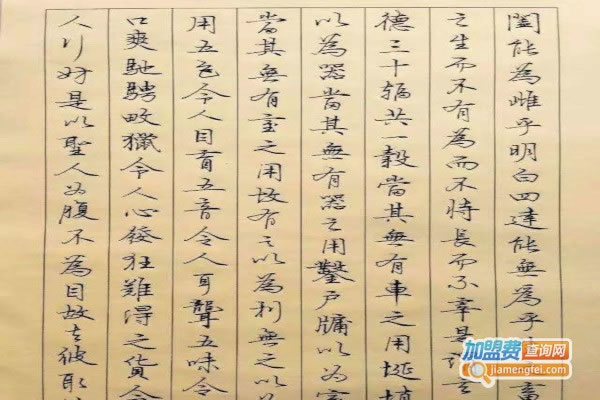 闔能為雌乎明白四達能無為乎 畜
之生而不有為而不恃長而不宰是謂玄
德三十輻共一轂當其無有車之用埏埴
以為器當其無有器之用鑿戶牖以為室
當其無有室之用故有之以為利無之以為
用五色令人目盲五音令人耳聾五味令
口爽馳騁畋獵令人心發狂難得之貨令
人行妨是以聖人為腹不為目故去彼取
加盟费查询网
jiamengfei.com